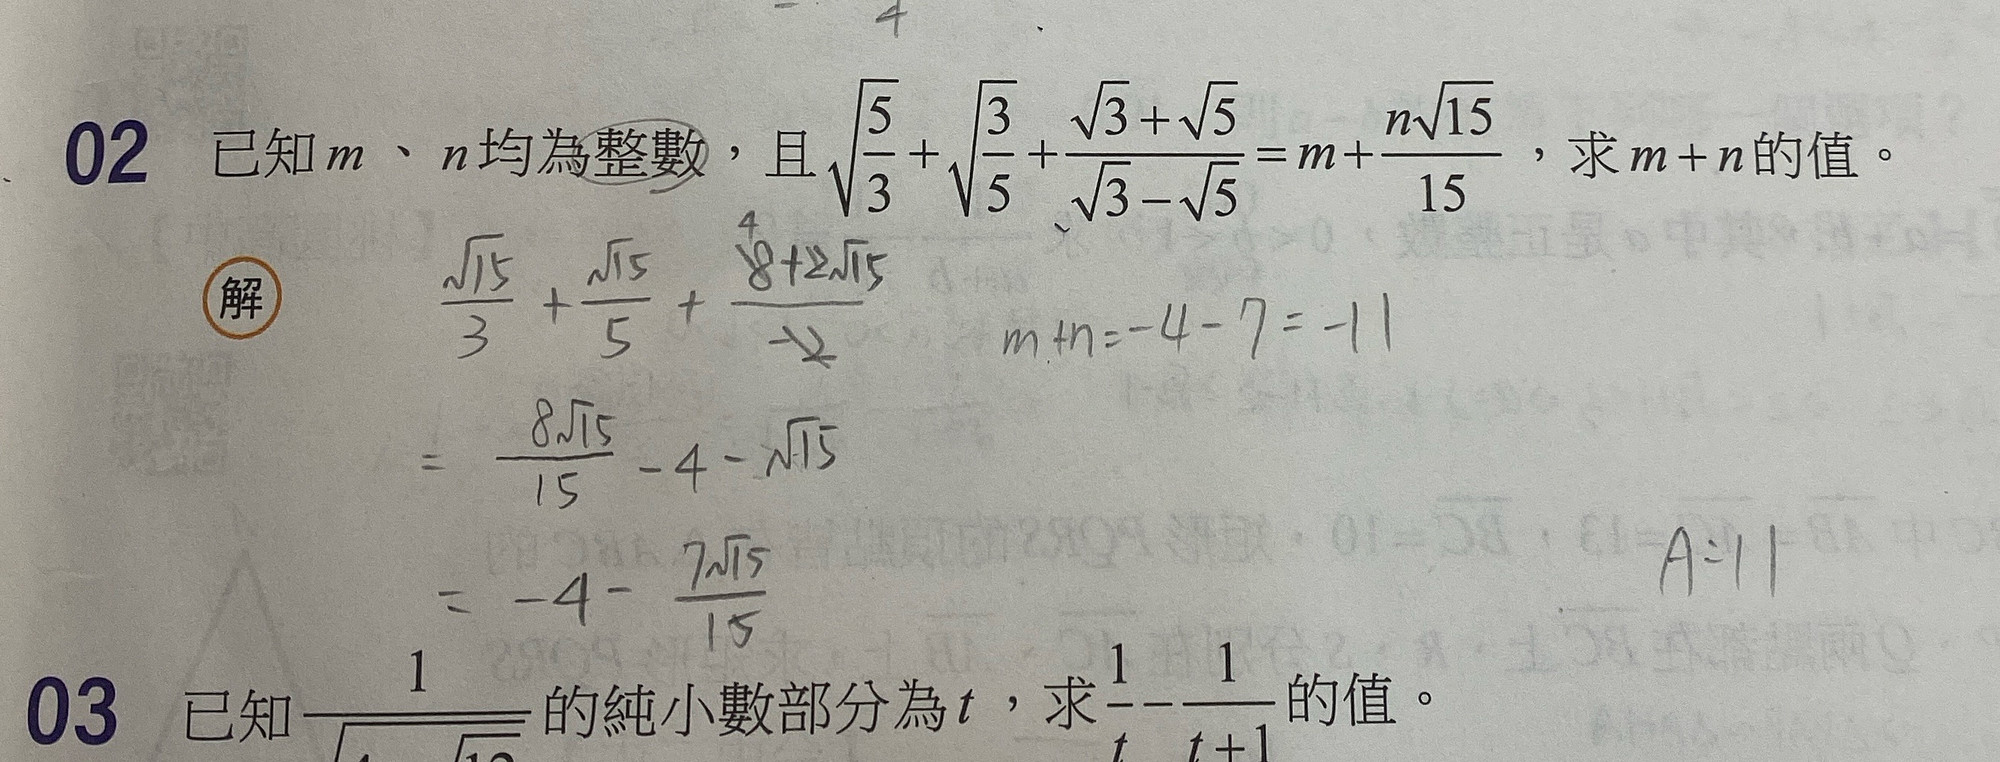 4
02 已知 m 、 n 均為整數，且 √(5/3) + √(3/5) + (√3+√5)/(√3−√5) = m + n√15/15 ，求 m + n 的值。
解 √15/3 + √15/5 + (8+2√15)/−2
4
m+n = −4 − 7 = −11
= 8√15/15 − 4 − √15
= −4 − 7√15/15
A: 11
03 已知 1/ 的純小數部分為 t ，求 1/t − 1/(t+1) 的值。